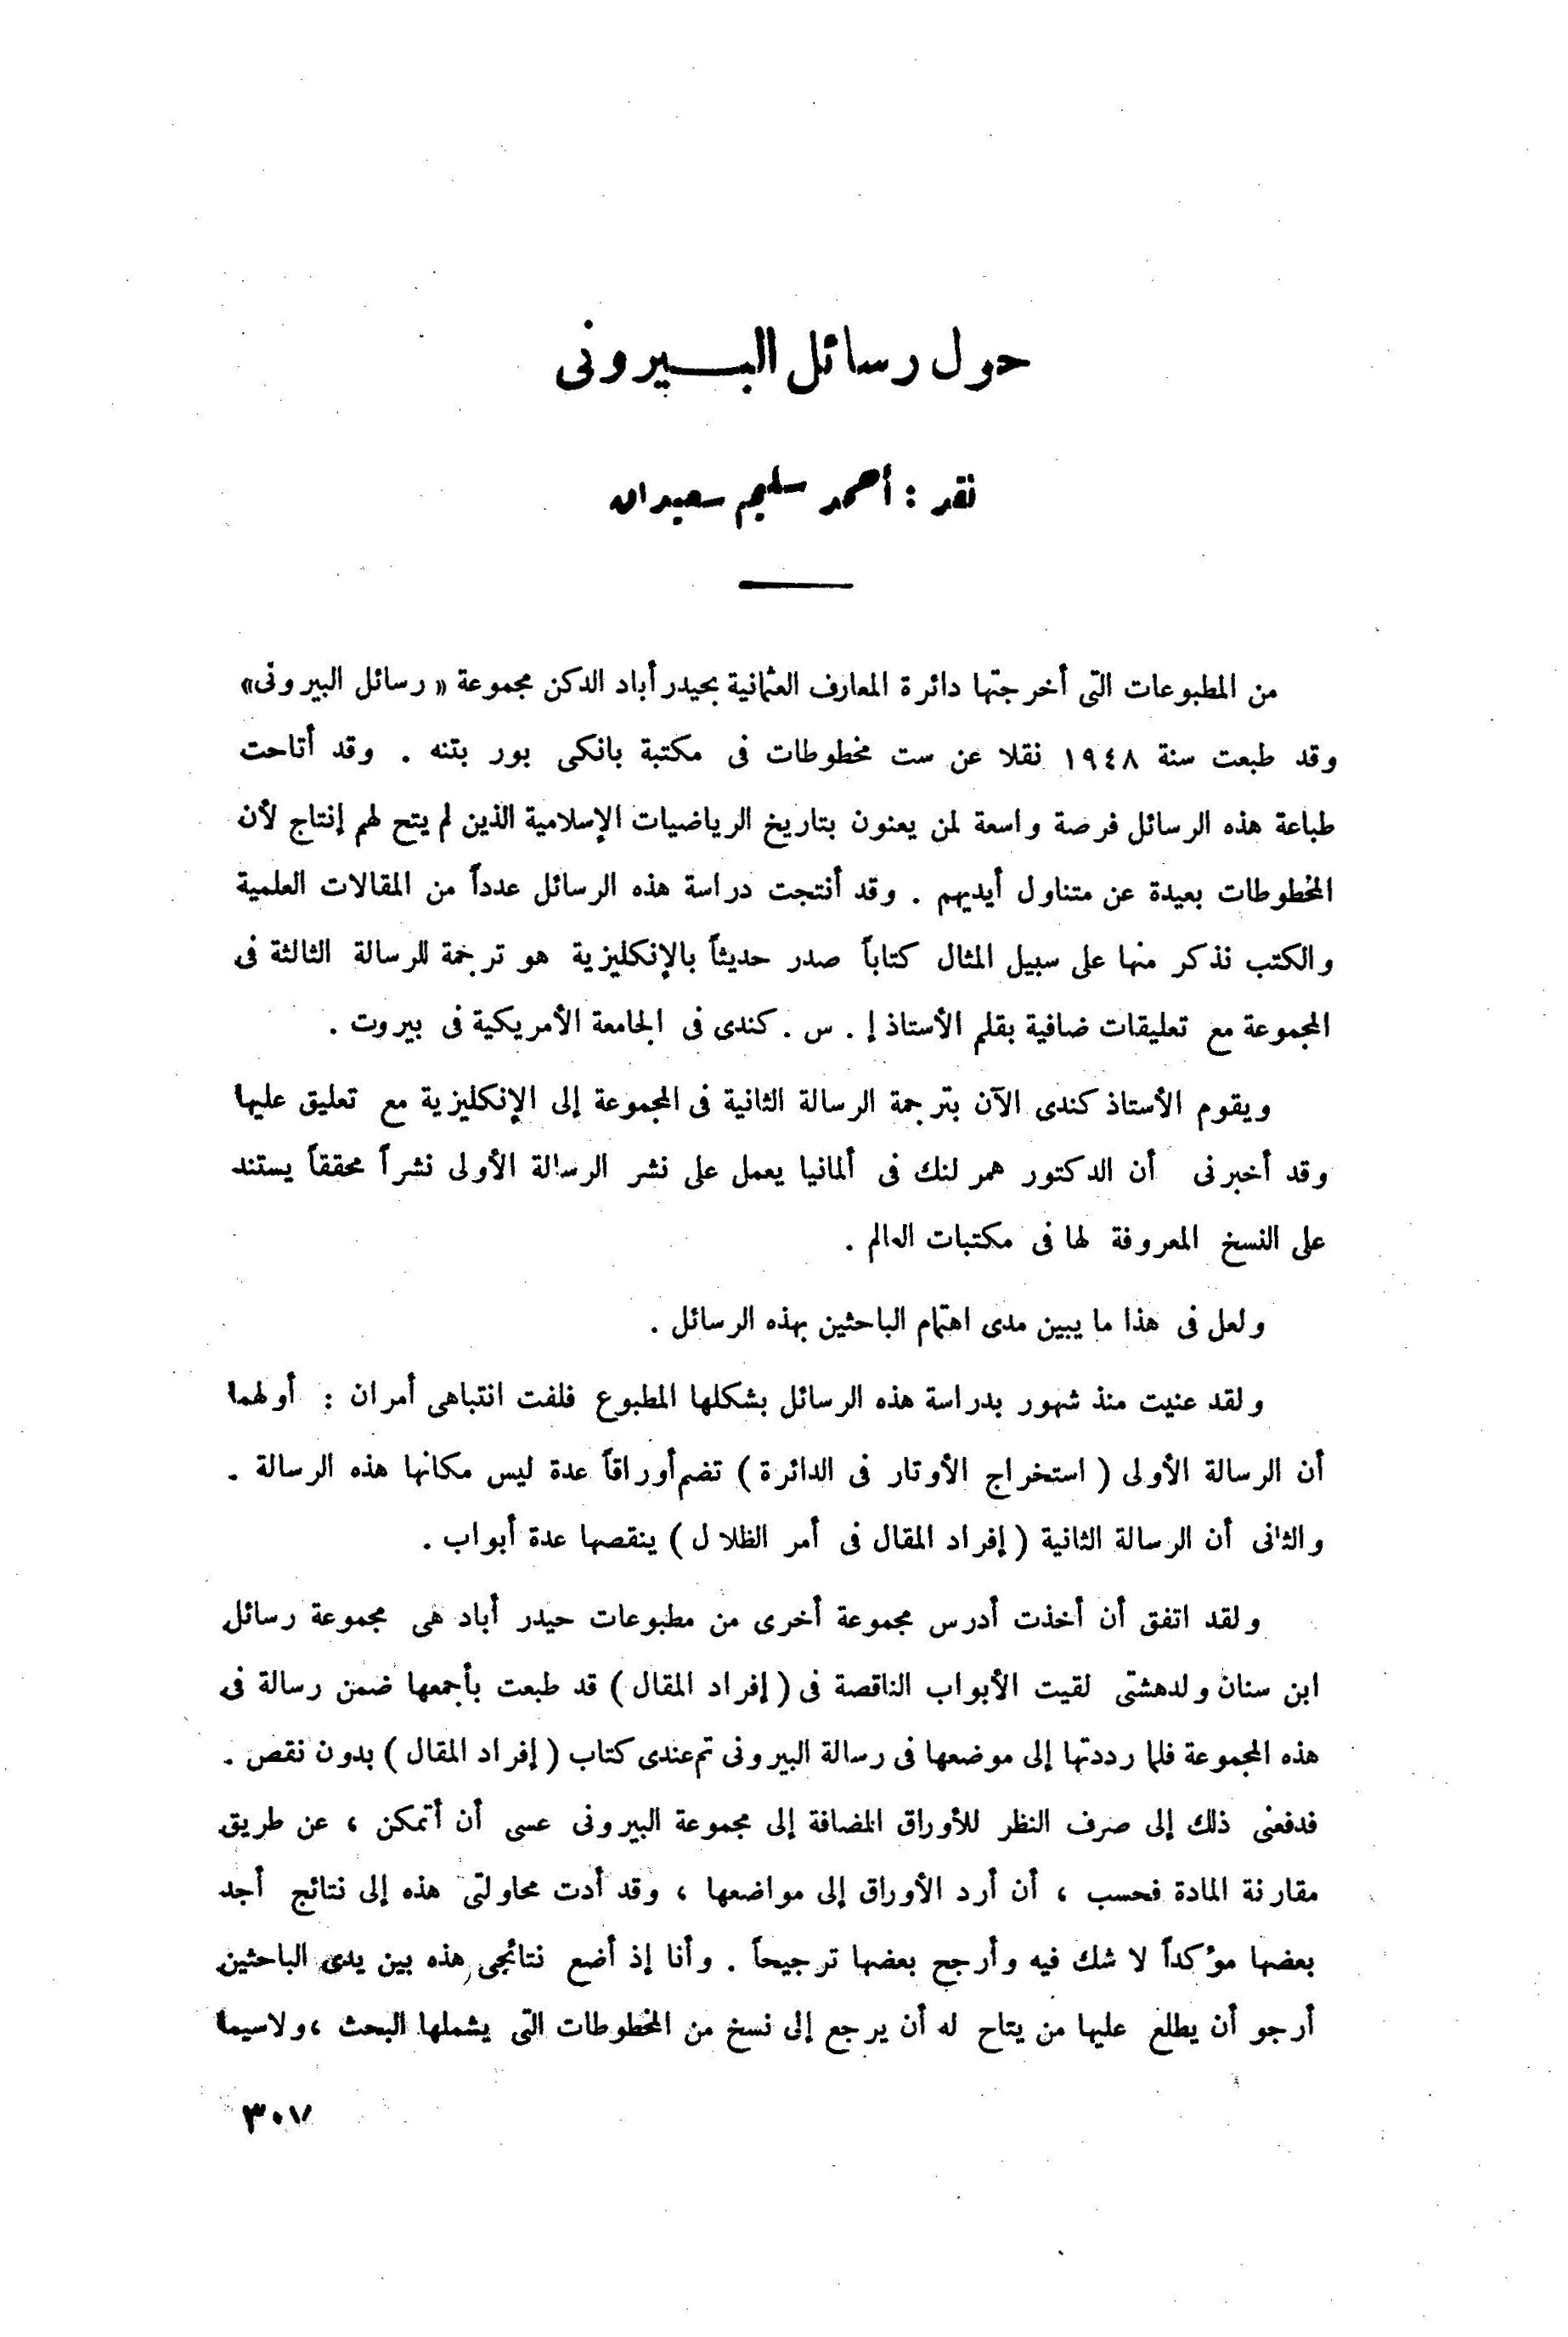 حول رسائل البيرونى
نقد : أحمد سليم سعيدان
من المطبوعات التى أخرجتها دائرة المعارف العثمانية بحيدر أباد الدكن مجموعة « رسائل البيرونى»
وقد طبعت سنة ١٩٤٨ نقلا عن ست مخطوطات فى مكتبة بانكى بور بتنه . وقد أتاحت
طباعة هذه الرسائل فرصة واسعة لمن يعنون بتاريخ الرياضيات الإسلامية الذين لم يتح لهم إنتاج لأن
المخطوطات بعيدة عن متناول أيديهم . وقد أنتجت دراسة هذه الرسائل عدداً من المقالات العلمية
والكتب نذكر منها على سبيل المثال كتاباً صدر حديثاً بالإنكليزية هو ترجمة للرسالة الثالثة فى
المجموعة مع تعليقات ضافية بقلم الأستاذ إ . س . كندى فى الجامعة الأمريكية فى بيروت .
ويقوم الأستاذ كندى الآن بترجمة الرسالة الثانية فى المجموعة إلى الإنكليزية مع تعليق عليها
وقد أخبرنى أن الدكتور همر لنك فى ألمانيا يعمل على نشر الرسالة الأولى نشراً محققاً يستند
على النسخ المعروفة لها فى مكتبات العالم .
ولعل فى هذا ما يبين مدى اهتمام الباحثين بهذه الرسائل .
ولقد عنيت منذ شهور بدراسة هذه الرسائل بشكلها المطبوع فلفت انتباهى أمران : أولهما
أن الرسالة الأولى ( استخراج الأوتار فى الدائرة ) تضم أوراقاً عدة ليس مكانها هذه الرسالة .
والثانى أن الرسالة الثانية ( إفراد المقال فى أمر الظلال ) ينقصها عدة أبواب .
ولقد اتفق أن أخذت أدرس مجموعة أخرى من مطبوعات حيدر أباد هى مجموعة رسائل
ابن سنان ولدهشتى لقيت الأبواب الناقصة فى ( إفراد المقال ) قد طبعت بأجمعها ضمن رسالة فى
هذه المجموعة فلما رددتها إلى موضعها فى رسالة البيرونى تم عندى كتاب ( إفراد المقال ) بدون نقص .
فدفعنى ذلك إلى صرف النظر للأوراق المضافة إلى مجموعة البيرونى عسى أن أتمكن ، عن طريق
مقارنة المادة فحسب ، أن أرد الأوراق إلى مواضعها ، وقد أدت محاولتى هذه إلى نتائج أجد
بعضها مؤكداً لا شك فيه وأرجح بعضها ترجيحاً . وأنا إذ أضع نتائجى هذه بين يدى الباحثين
أرجو أن يطلع عليها من يتاح له أن يرجع إلى نسخ من المخطوطات التى يشملها البحث ، ولاسيما
٣٠٧